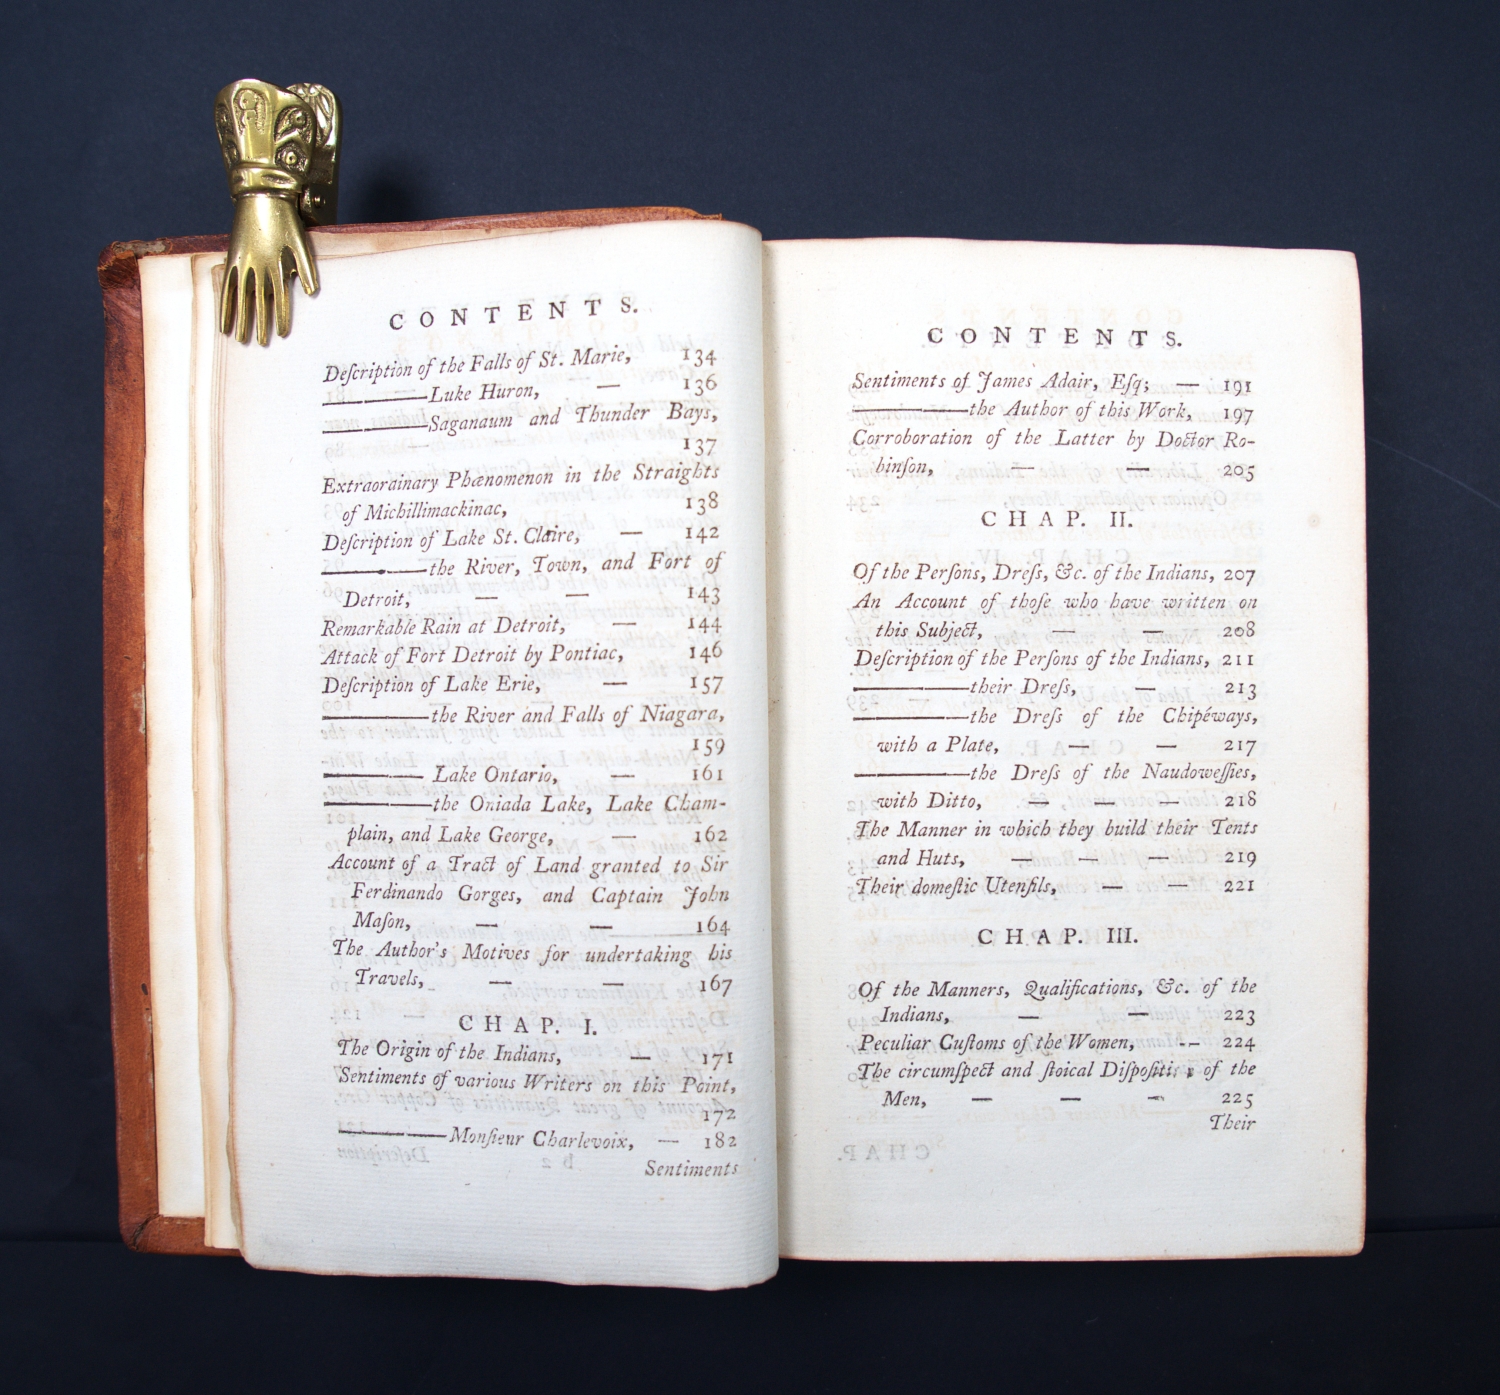 CONTENTS.
Deſcription of the Falls of St. Marie, 134
———Luke Huron, — 136
———Saganaum and Thunder Bays,
137
Extraordinary Phænomenon in the Straights
of Michillimackinac, 138
Deſcription of Lake St. Claire, — 142
———the River, Town, and Fort of
Detroit, — — 143
Remarkable Rain at Detroit, — 144
Attack of Fort Detroit by Pontiac, 146
Deſcription of Lake Erie, — 157
———the River and Falls of Niagara,
159
——— Lake Ontario, — 161
———the Oniada Lake, Lake Cham-
plain, and Lake George, — 162
Account of a Tract of Land granted to Sir
Ferdinando Gorges, and Captain John
Maſon, — — 164
The Author's Motives for undertaking his
Travels, — — 167
CHAP. I.
The Origin of the Indians, — 171
Sentiments of various Writers on this Point,
172
———Monſieur Charlevoix, — 182
Sentiments
CONTENTS.
Sentiments of James Adair, Eſq; — 191
———the Author of this Work, 197
Corroboration of the Latter by Doctor Ro-
binſon, — — 205
CHAP. II.
Of the Perſons, Dreſs, &c. of the Indians, 207
An Account of thoſe who have written on
this Subject, — — 208
Deſcription of the Perſons of the Indians, 211
———their Dreſs, — 213
———the Dreſs of the Chipéways,
with a Plate, — — 217
———the Dreſs of the Naudoweſſies,
with Ditto, — — — 218
The Manner in which they build their Tents
and Huts, — — — 219
Their domeſtic Utenſils, — — 221
CHAP. III.
Of the Manners, Qualifications, &c. of the
Indians, — — 223
Peculiar Cuſtoms of the Women, -- 224
The circumſpect and ſtoical of the
Men, — — — 225
Their